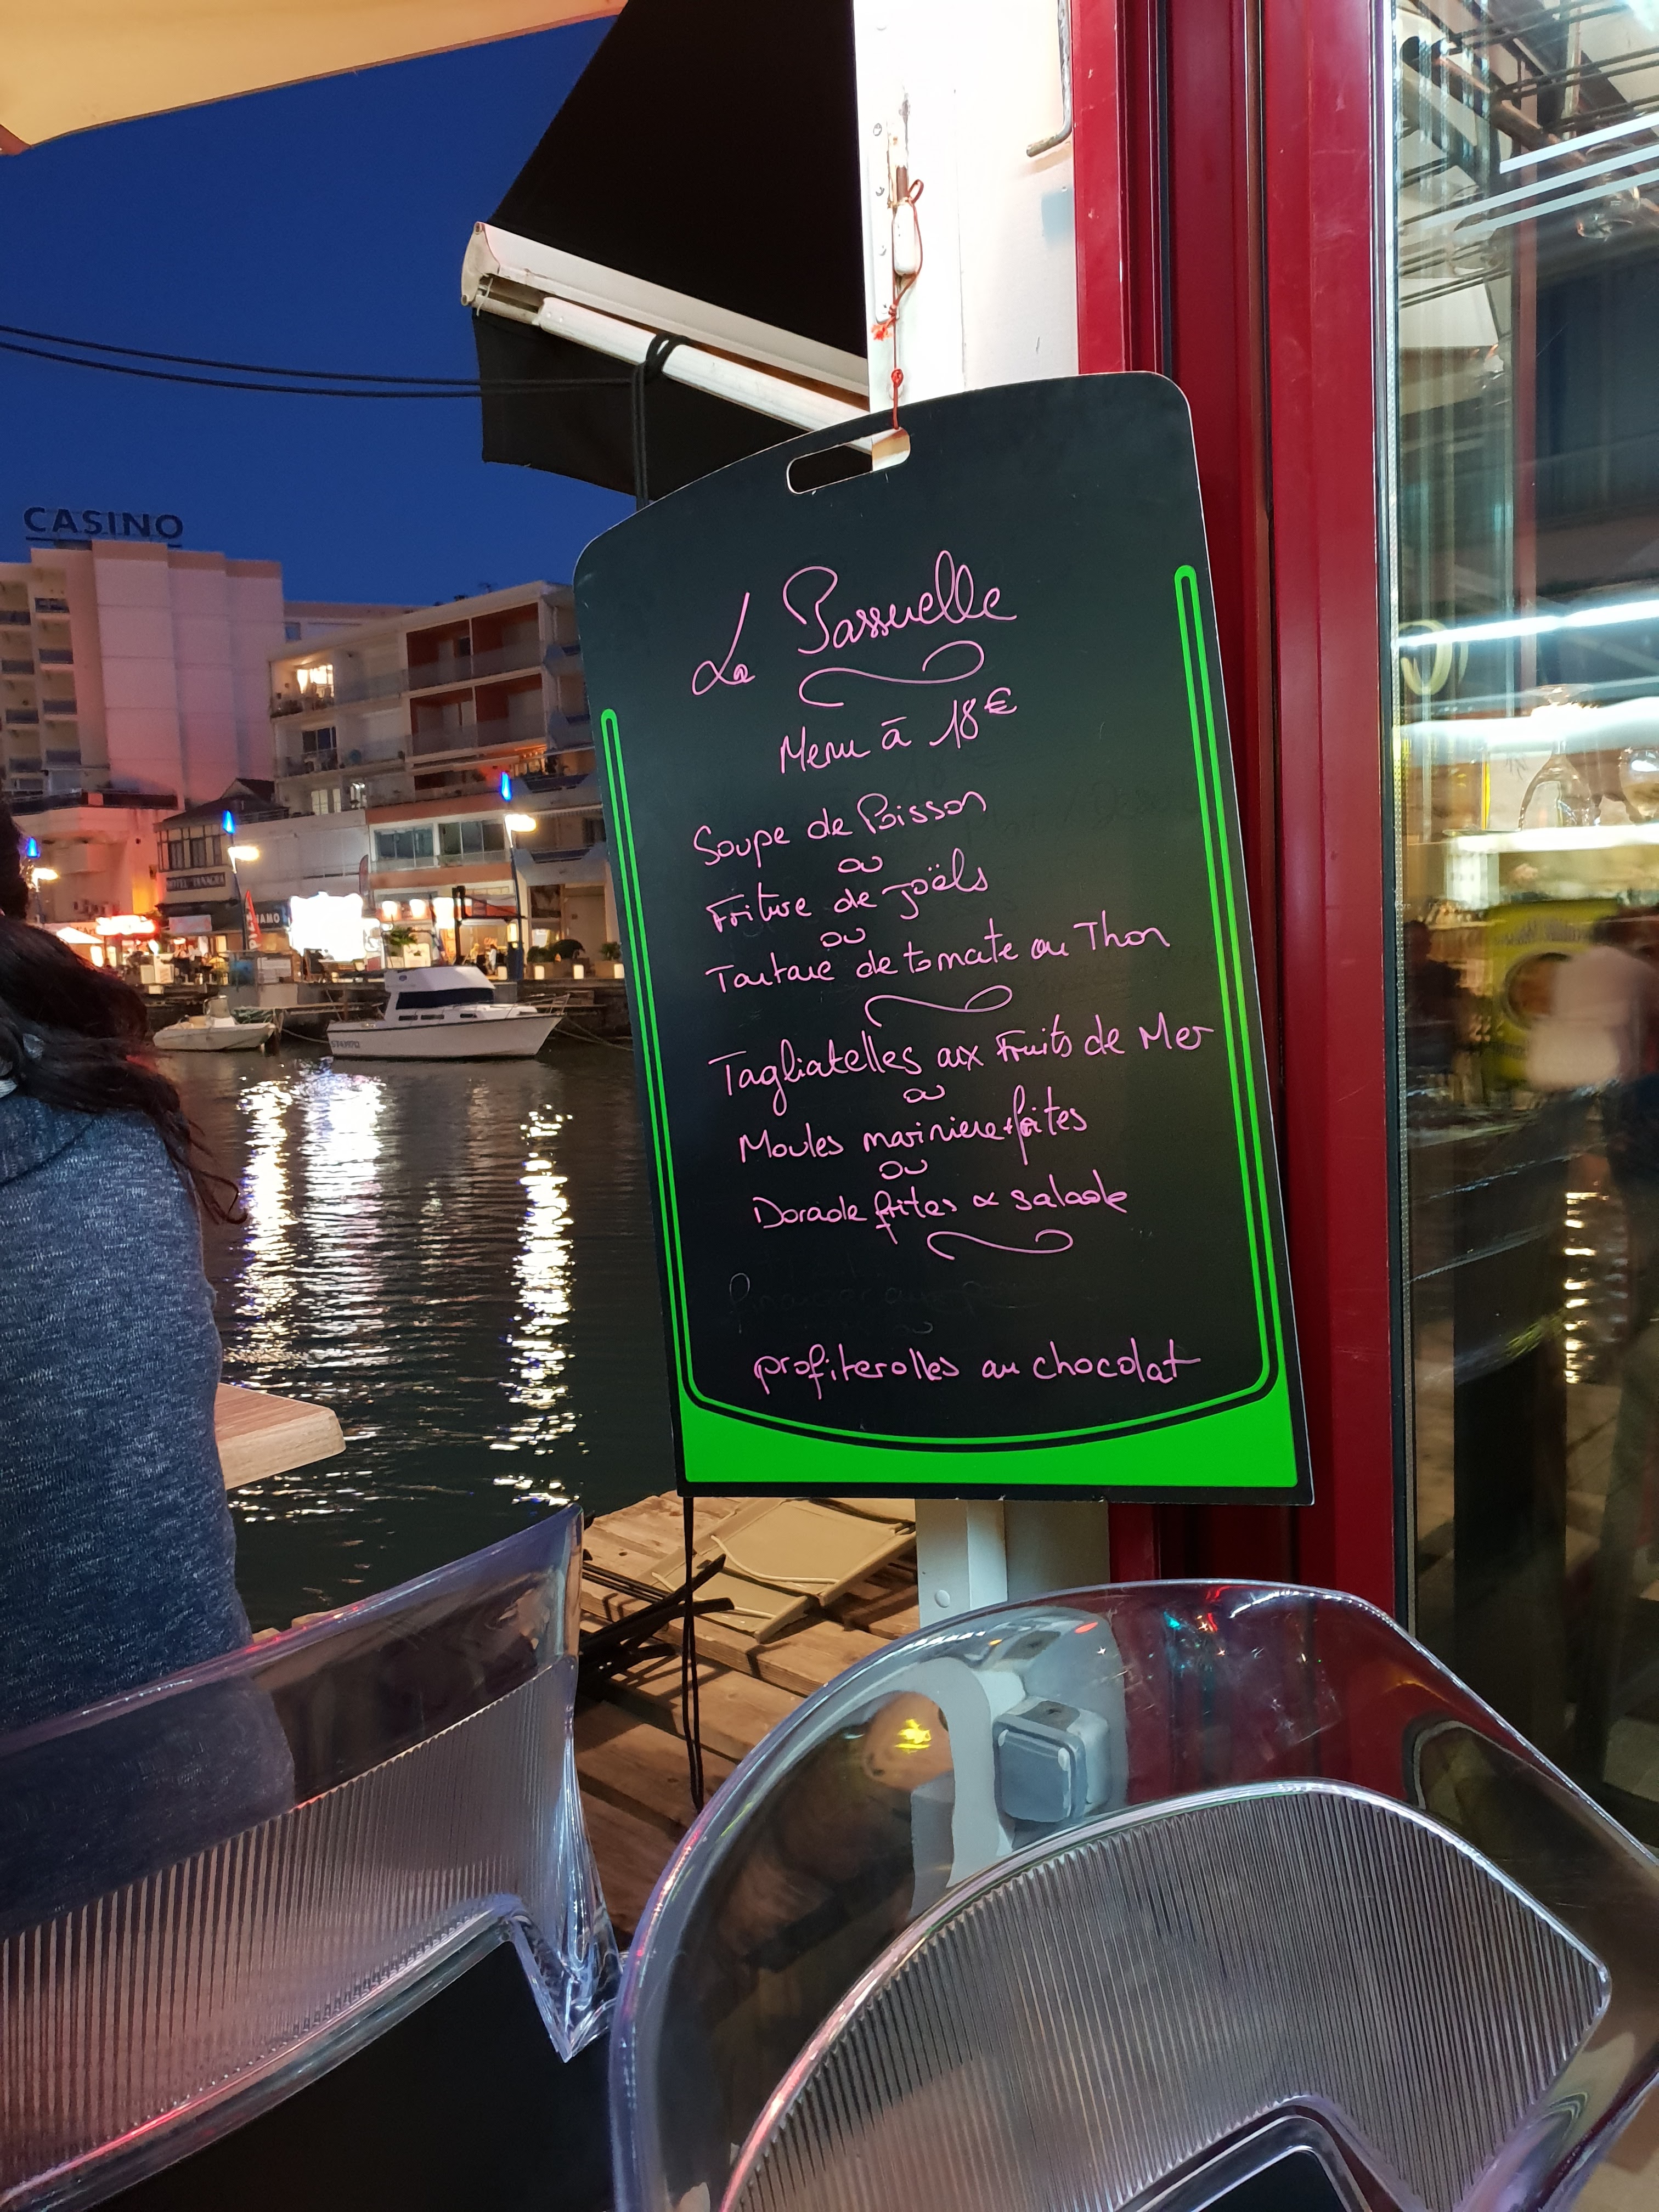 CASINO
HOTEL
La Passuelle
Menu à 18€
Soupe de Poisson
ou
Friture de joëls
ou
Tartare de tomate au Thon
Tagliatelles aux Fruits de Mer
ou
Moules mariniere+frites
ou
Dorade frites & salade
financier
profiterolles au chocolat